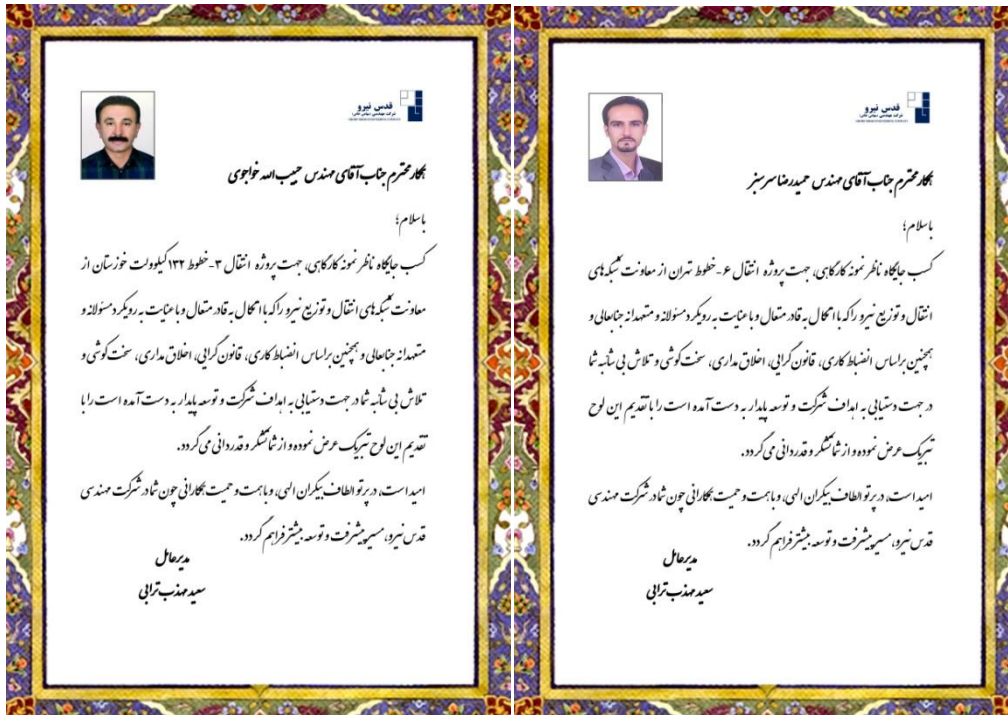 قدس نیرو
همکار محترم جناب آقای مهندس حمیدرضا سرسبز
باسلام؛
کسب جایگاه ناظر نمونه کارگاهی، جهت پروژه انتقال ۶-خطوط تهران از معاونت شبکه‌های
انتقال و توزیع نیرو را که با اتکال به قادر متعال و با عنایت به رویکرد مسئولانه و متعهدانه جنابعالی و
همچنین براساس انضباط کاری، قانون گرایی، اخلاق مداری، سخت کوشی و تلاش بی شائبه شما
در جهت دستیابی به اهداف شرکت و توسعه پایدار به دست آمده است را با تقدیم این لوح
تبریک عرض نموده و از شما تشکر و قدردانی می‌گردد.
امید است، در پرتو الطاف بیکران الهی، و با همت و حمیت همکارانی چون شما در شرکت مهندسی
قدس نیرو، مسیر پیشرفت و توسعه بیشتر فراهم گردد.
مدیرعامل
سعید مهذب ترابی
قدس نیرو
همکار محترم جناب آقای مهندس حبیب الله خواجوی
باسلام؛
کسب جایگاه ناظر نمونه کارگاهی، جهت پروژه انتقال ۳-خطوط ۱۳۲کیلوولت خوزستان از
معاونت شبکه‌های انتقال و توزیع نیرو را که با اتکال به قادر متعال و با عنایت به رویکرد مسئولانه و
متعهدانه جنابعالی و همچنین براساس انضباط کاری، قانون گرایی، اخلاق مداری، سخت کوشی و
تلاش بی شائبه شما در جهت دستیابی به اهداف شرکت و توسعه پایدار به دست آمده است را با
تقدیم این لوح تبریک عرض نموده و از شما تشکر و قدردانی می‌گردد.
امید است، در پرتو الطاف بیکران الهی، و با همت و حمیت همکارانی چون شما در شرکت مهندسی
قدس نیرو، مسیر پیشرفت و توسعه بیشتر فراهم گردد.
مدیرعامل
سعید مهذب ترابی